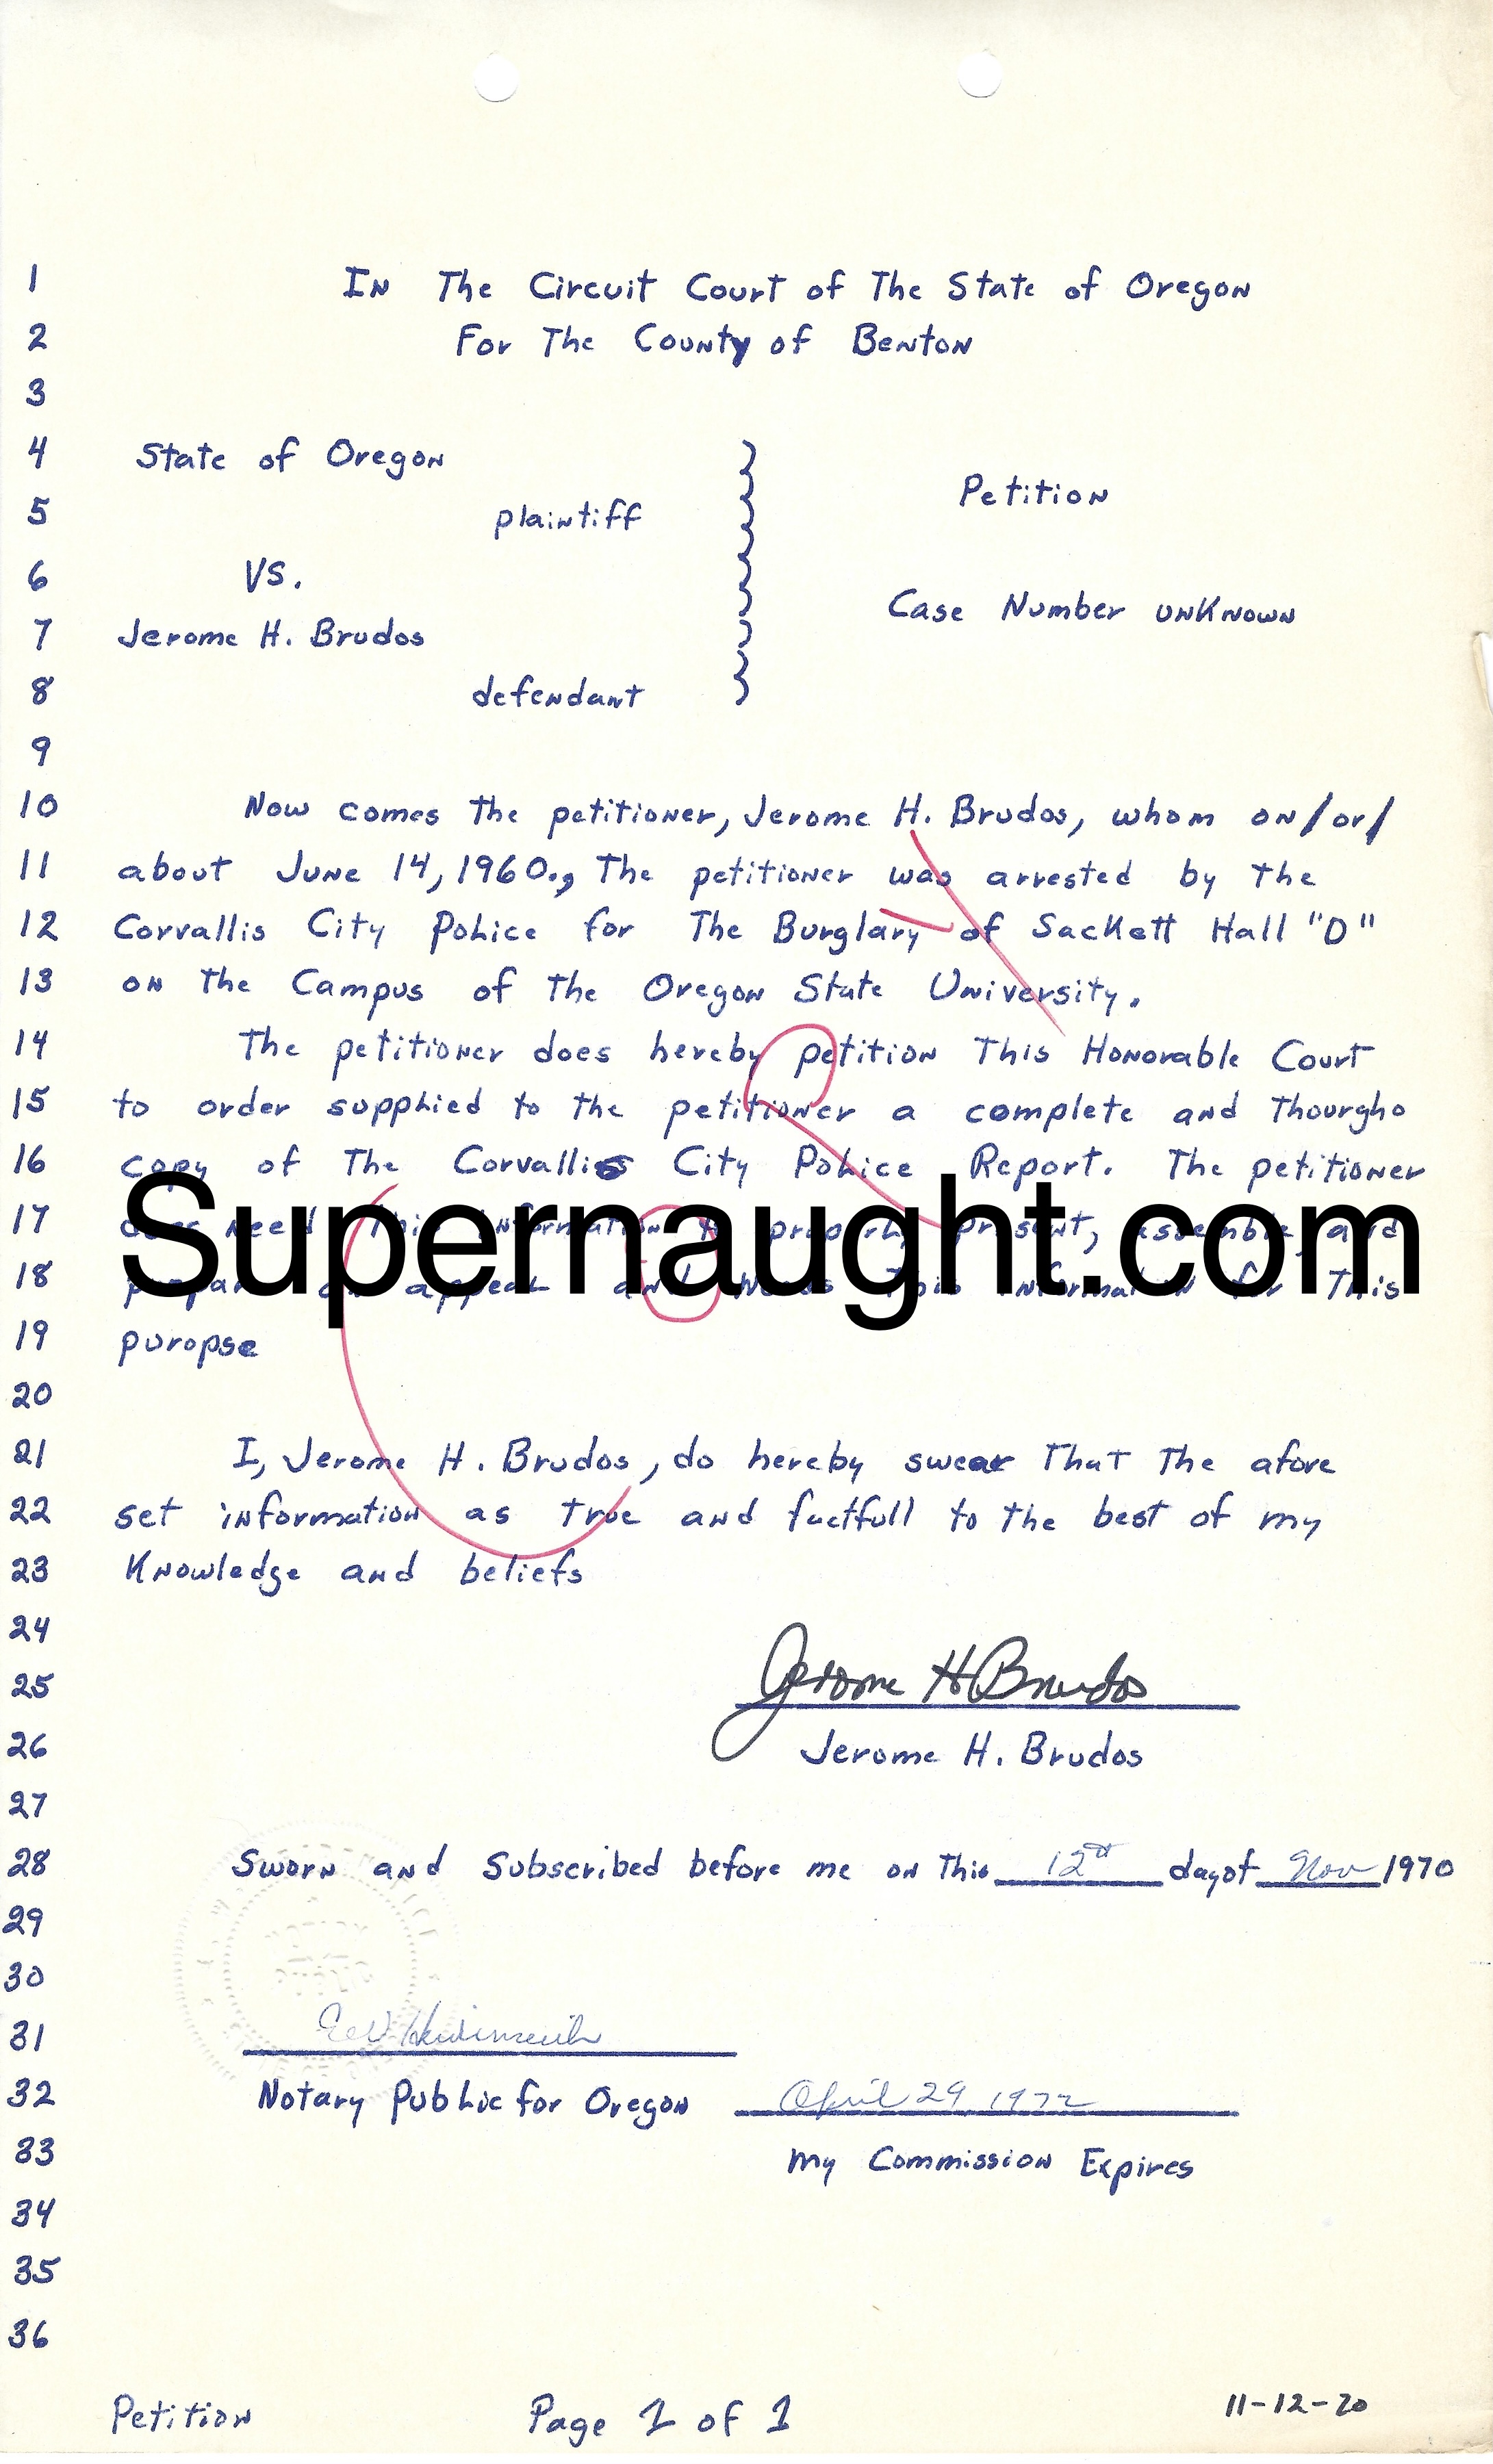 1 In The Circuit Court of The State of Oregon
2 For The County of Benton
3
4 State of Oregon
Petition
5 plaintiff
6 VS.
Case Number unknown
7 Jerome H. Brudos
8 defendant
9
10 Now comes the petitioner, Jerome H. Brudos, whom on/or/
11 about June 14, 1960., The petitioner was arrested by the
12 Corvallis City Police for The Burglary of Sackett Hall "D"
13 on the Campus of the Oregon State University.
14 The petitioner does hereby petition This Honorable Court
15 to order supplied to the petitioner a complete and Thourgho
16 copy of The Corvallis City Police Report. The petitioner
Supernaught.com
17 does need This information to properly present, assemble, and
18 appeal and This information for This
19 puropse
20
21 I, Jerome H. Brudos, do hereby swear That The afore
22 set information as true and factfull to the best of my
23 Knowledge and beliefs
24
25 Jerome H Brudos
26 Jerome H. Brudos
27
28 Sworn and Subscribed before me on This 12th day of Nov 1970
29
30
31
32 Notary Public for Oregon April 29, 1972
33 My Commission Expires
34
35
36
Petition Page 1 of 1 11-12-70